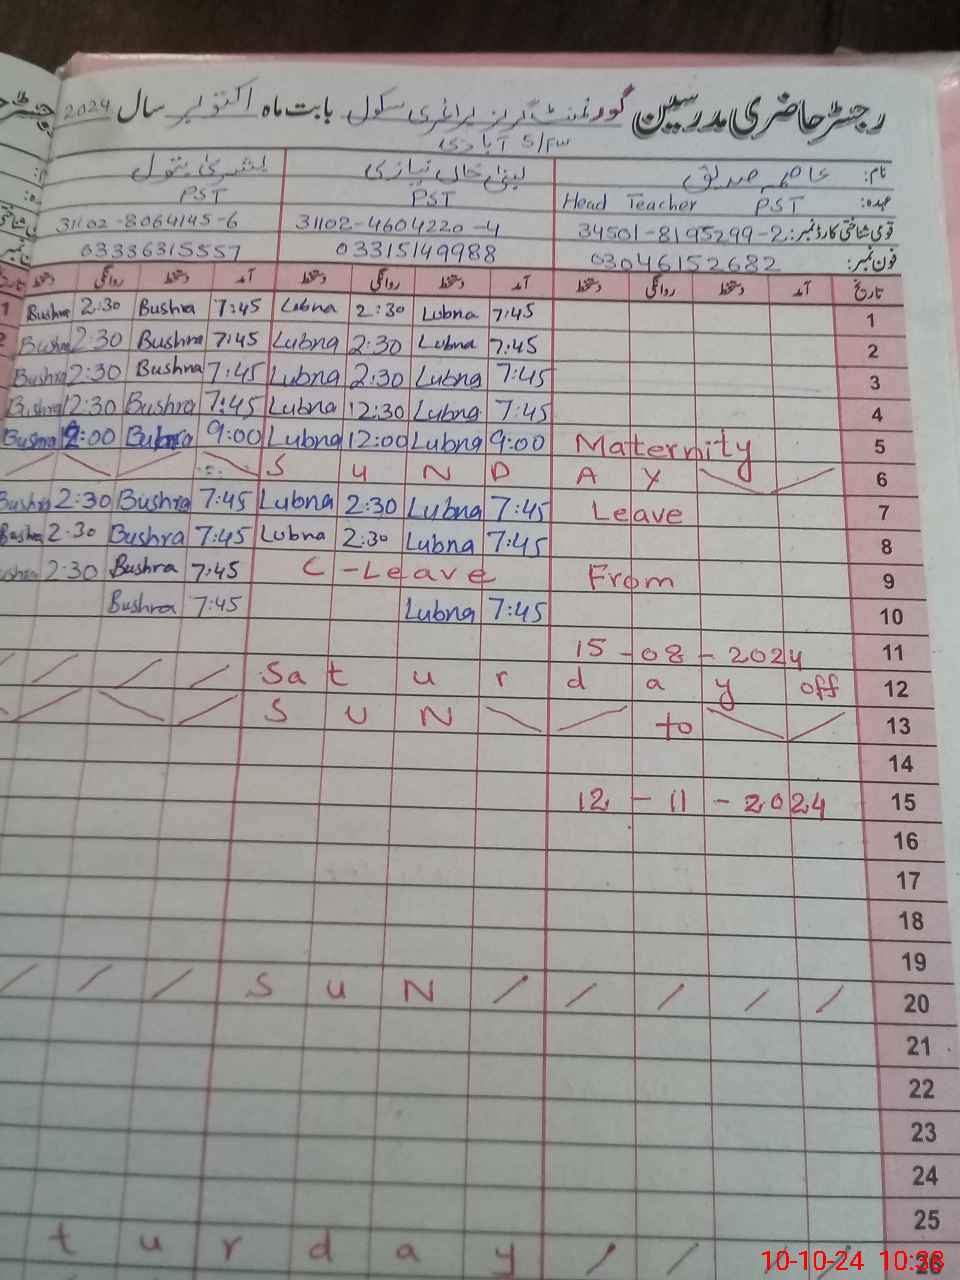 رجسٹر حاضری مدرسین گورنمنٹ گرلز پرائمری سکول بابت ماہ اکتوبر سال 2024
5/FW آبادی
نام: عاصمہ صدیق لبنیٰ خان نیازی بشریٰ بتول
عہدہ: Head Teacher PST PST PST
قومی شناختی کارڈ نمبر: 34501-8195299-2 31102-4604220-4 31102-8064145-6
فون نمبر: 03046152682 03315149988 03336315557
تاریخ آمد دستخط روانگی دستخط آمد دستخط روانگی دستخط آمد دستخط روانگی دستخط
1 Bushra 2:30 Bushra 7:45 Lubna 2:30 Lubna 7:45 1
2 Bushra 2:30 Bushra 7:45 Lubna 2:30 Lubna 7:45 2
Bushra 2:30 Bushra 7:45 Lubna 2:30 Lubna 7:45 3
Bushra 12:30 Bushra 7:45 Lubna 12:30 Lubna 7:45 4
Bushra 12:00 Bushra 9:00 Lubna 12:00 Lubna 9:00 Maternity 5
S U N D A Y 6
Bushra 2:30 Bushra 7:45 Lubna 2:30 Lubna 7:45 Leave 7
Bushra 2:30 Bushra 7:45 Lubna 2:30 Lubna 7:45 8
Bushra 2:30 Bushra 7:45 C-Leave From 9
Bushra 7:45 Lubna 7:45 10
15-08-2024 11
Sa t u r d a y off 12
S U N to 13
14
12-11-2024 15
16
17
18
19
S U N 20
21
22
23
24
25
t u r d a y 26
10-10-24 10:38